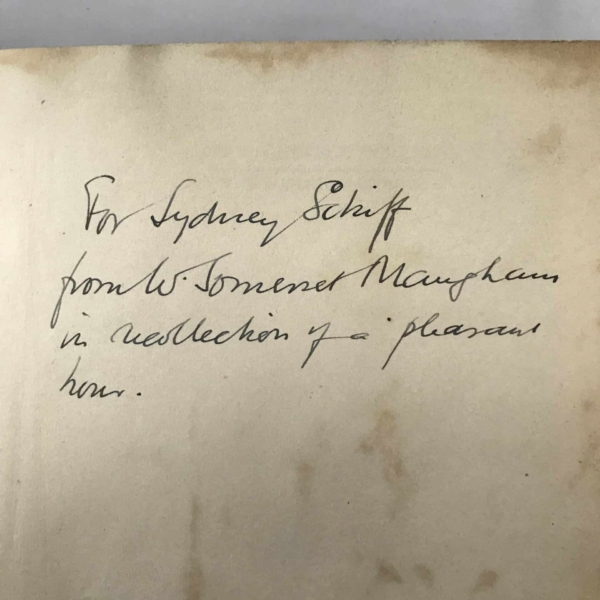 For Sydney Schiff
from W. Somerset Maugham
in recollection of a pleasant
hour.